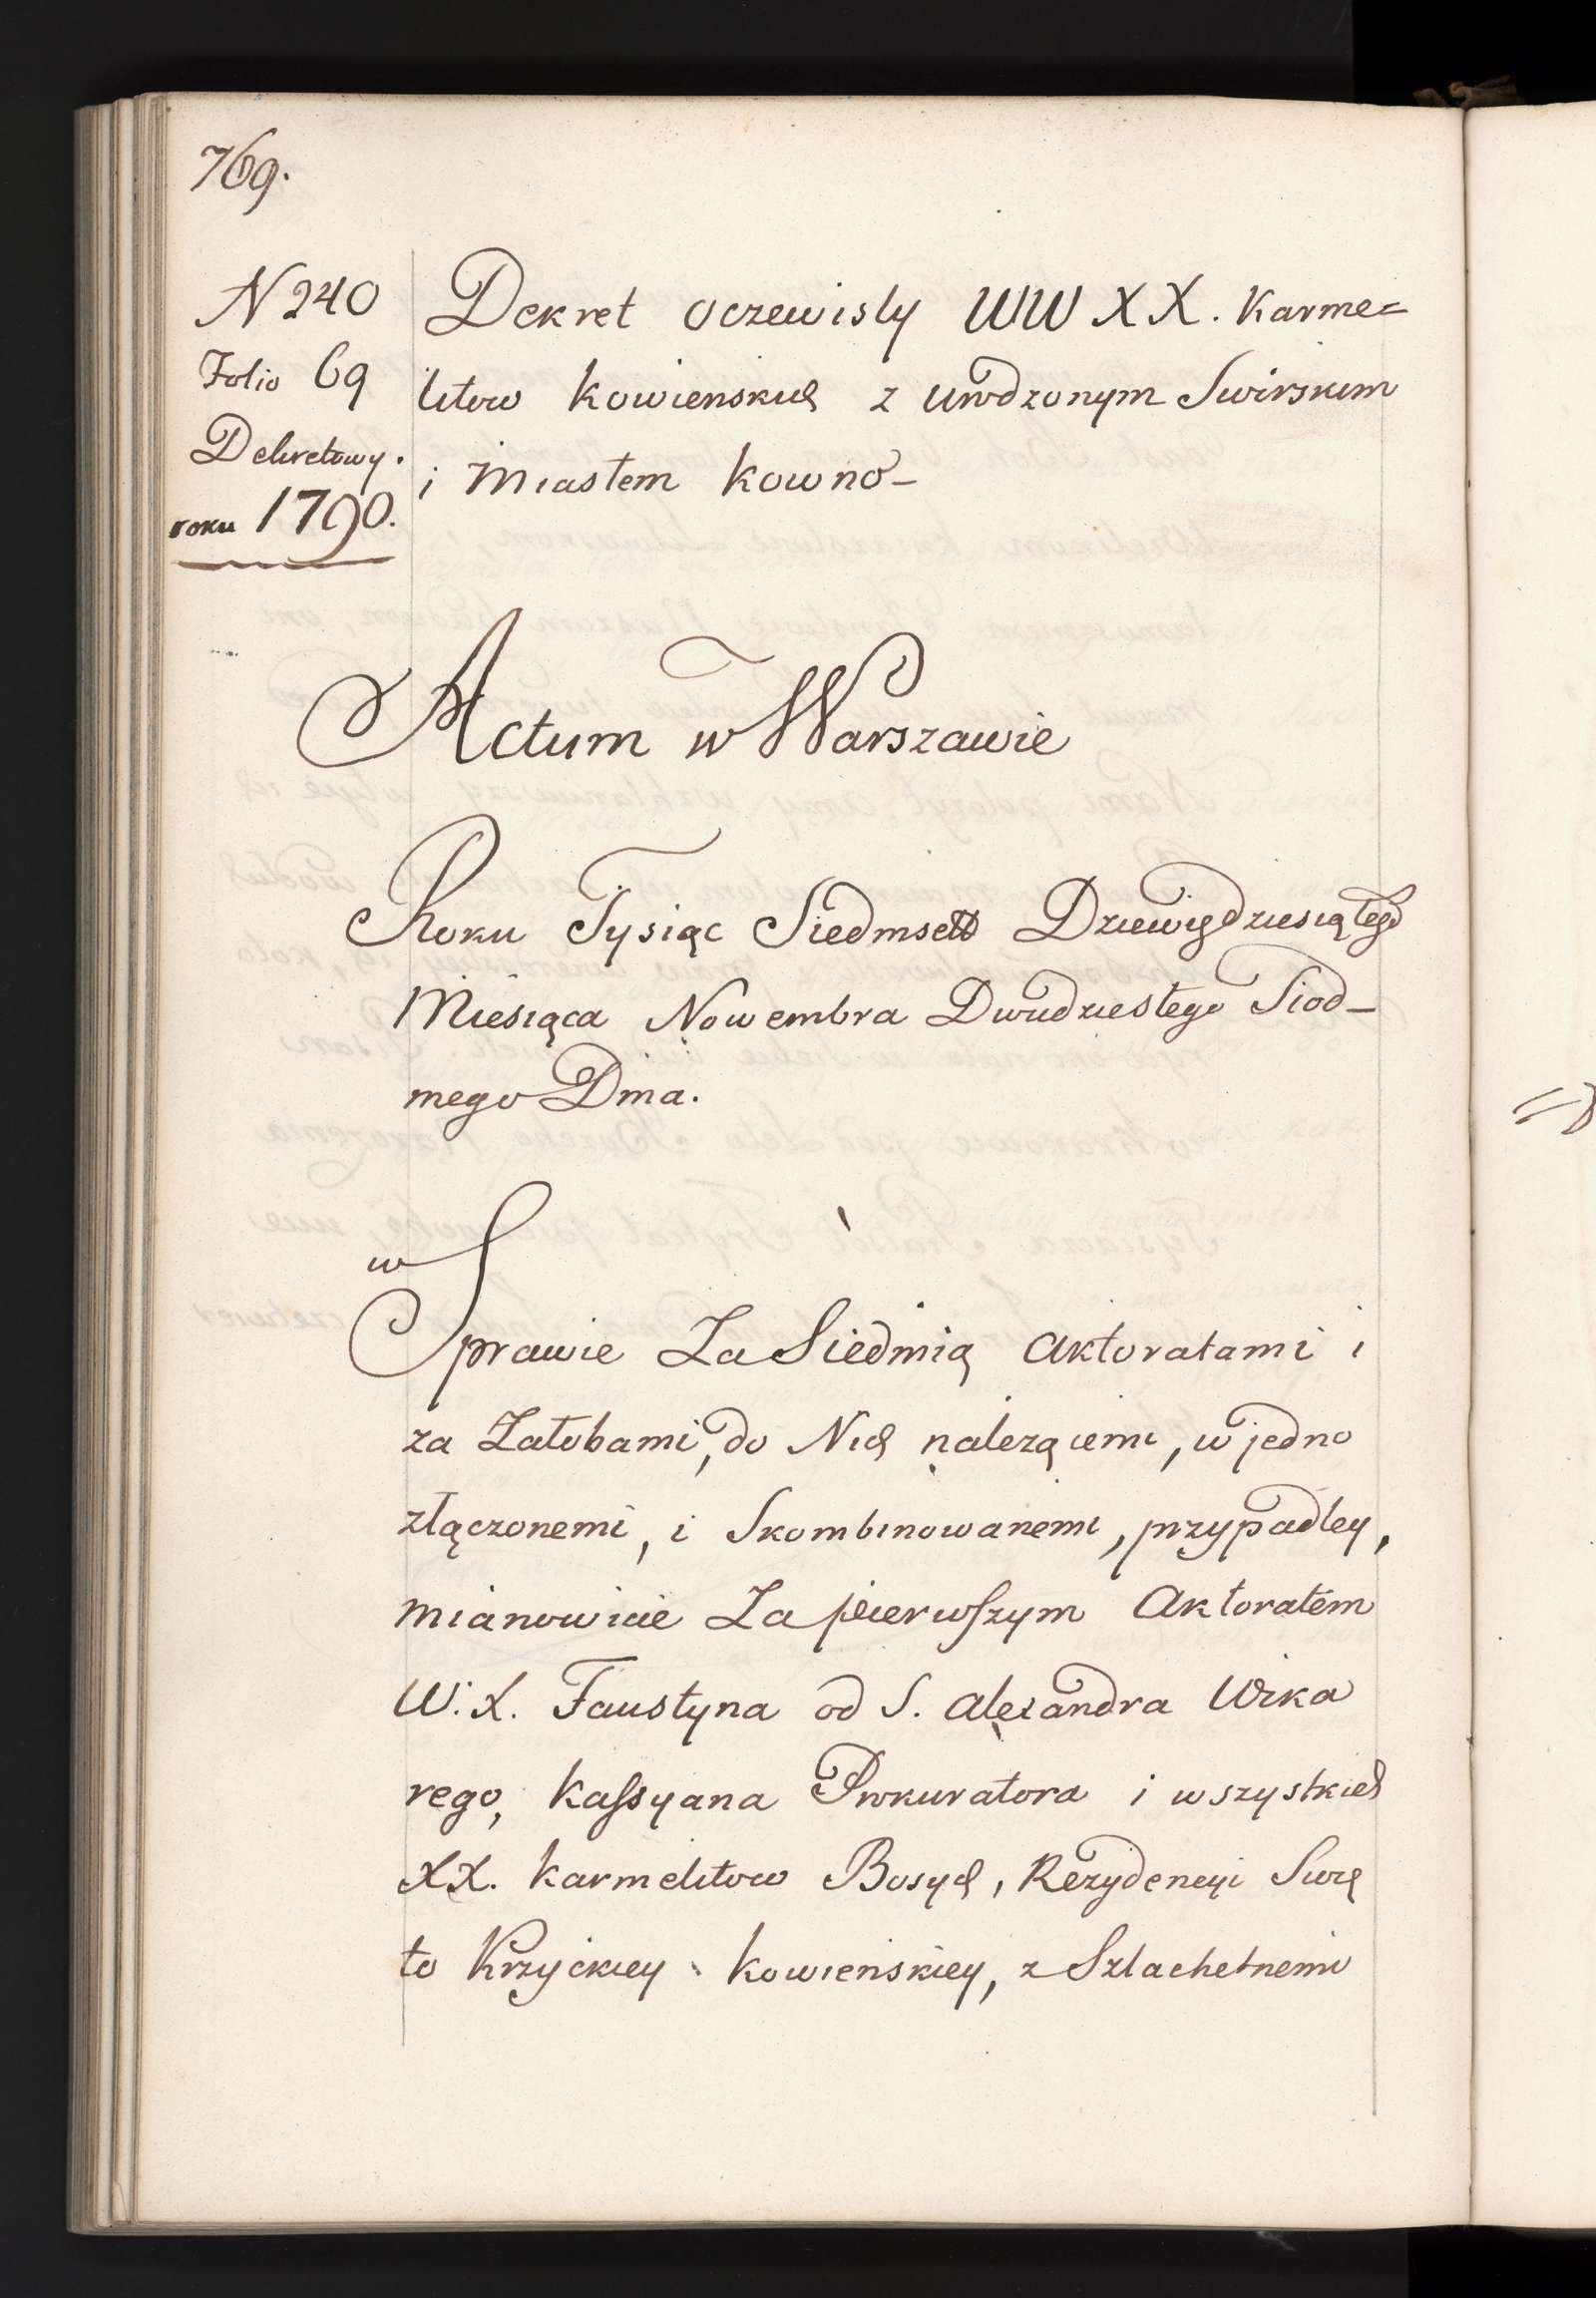 769.
N 240
Folio 69
Dekretowy.
roku 1790.
Dekret Oczewisty WW XX. Karme=
litow Kowienskich z Urodzonym Swirskim
i Miastem Kowno_
Actum w Warszawie
Roku Tysiąc Siedmset Dziewiędziesiątego
Miesiąca Nowembra Dwudziestego Siod_
mego Dnia.
w
Sprawie Za Siedmią Aktoratami i
za Załobami, do Nich należącemi, w jedno
złączonemi, i Skombinowanemi, przypadłey,
mianowicie Za pierwszym Aktoratem
W. X. Faustyna od S. Alexandra Wika
rego, Kassyana Prokuratora i wszystkich
XX. Karmelitow Bosych, Rezydencyi Swię
to Krzyckiey Kowieńskiey, z Szlachetnemi